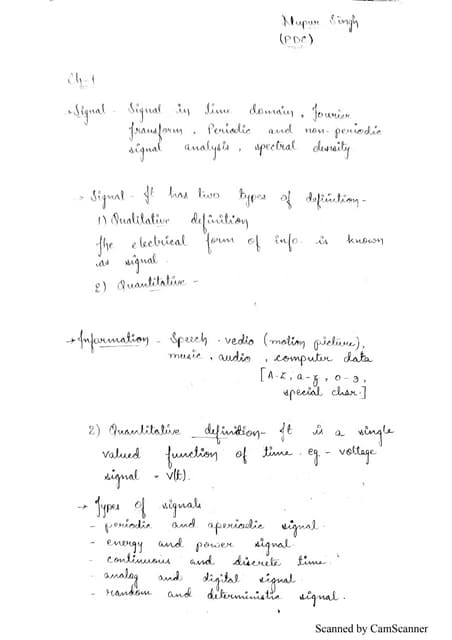 Nupur Singh
(PDC)
Ch-1
→ Signal - Signal in time domain, Fourier
transform, Periodic and non-periodic
signal analysis, spectral density
→ Signal - It has two types of definition -
1) Qualitative definition
The electrical form of info. is known
as signal.
2) Quantitative -
→ Information - Speech, vedio (motion picture),
music, audio, computer data
[A-Z, a-z, 0-9,
special char.]
2) Quantitative definition - It is a single
valued function of time. eg. - voltage
signal - v(t).
→ Types of signals
- periodic and aperiodic signal.
- energy and power signal.
- continuous and discrete time.
- analog and digital signal.
- random and deterministic signal.
Scanned by CamScanner